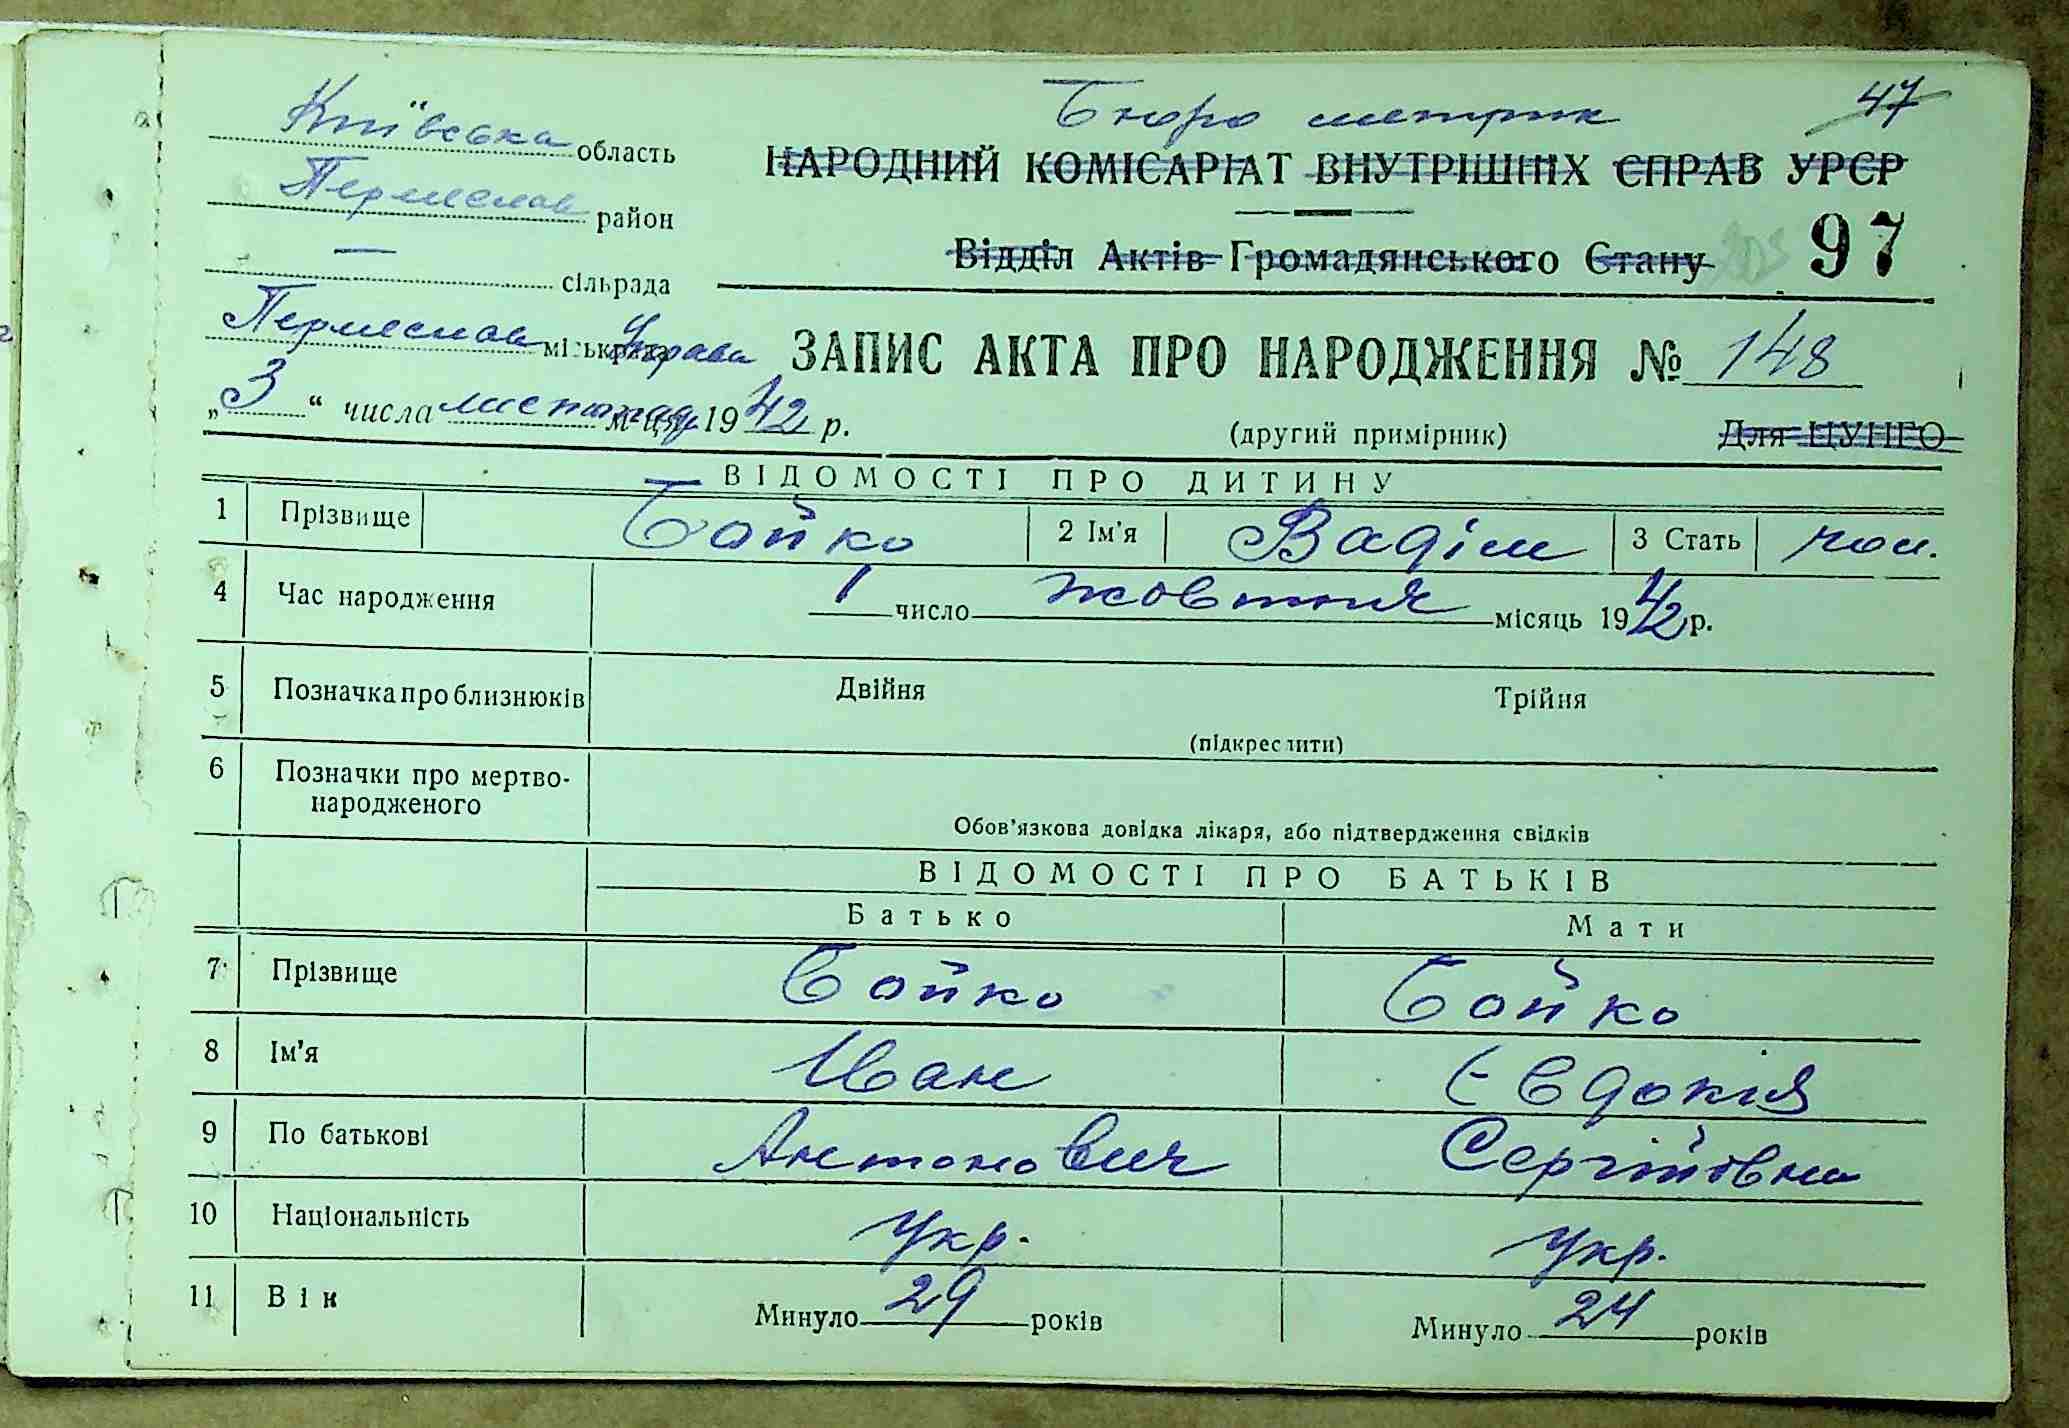 Київська область
Бюро метрик 47
НАРОДНИЙ КОМІСАРІАТ ВНУТРІШНІХ СПРАВ УРСР
район
— сільрада
Відділ Актів Громадянського Стану 97
міськрада Управа
ЗАПИС АКТА ПРО НАРОДЖЕННЯ № 148
„3“ числа листопада м-ця 1942 р.
(другий примірник) Для ЦУНГО
ВІДОМОСТІ ПРО ДИТИНУ
1 Прізвище Бойко 2 Ім'я Вадім 3 Стать чол.
4 Час народження 1 число жовтня місяць 1942 р.
5 Позначка про близнюків Двійня Трійня
(підкреслити)
6 Позначки про мертво-
народженого
Обов'язкова довідка лікаря, або підтвердження свідків
ВІДОМОСТІ ПРО БАТЬКІВ
Батько Мати
7 Прізвище Бойко Бойко
8 Ім'я Іван Євдокія
9 По батькові Антонович Сергійовна
10 Національність Укр. Укр.
11 Вік Минуло 29 років Минуло 24 років